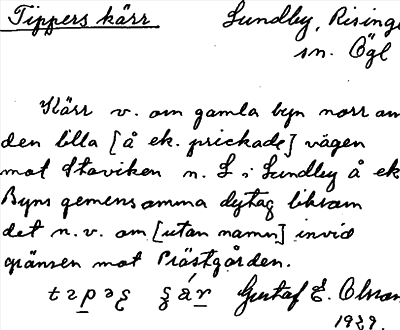 Tippers kärr Lundby, Risinge
sn. Ögl
Kärr v. om gamla byn norr om
den lilla [å ek. prickade] vägen
mot Staviken n. L i Lundby å ek
Byns gemensamma dytag liksom
det n. v. om [utan namn] invid
gränsen mot Prästgården.
Gustaf E. Olsson
1929.